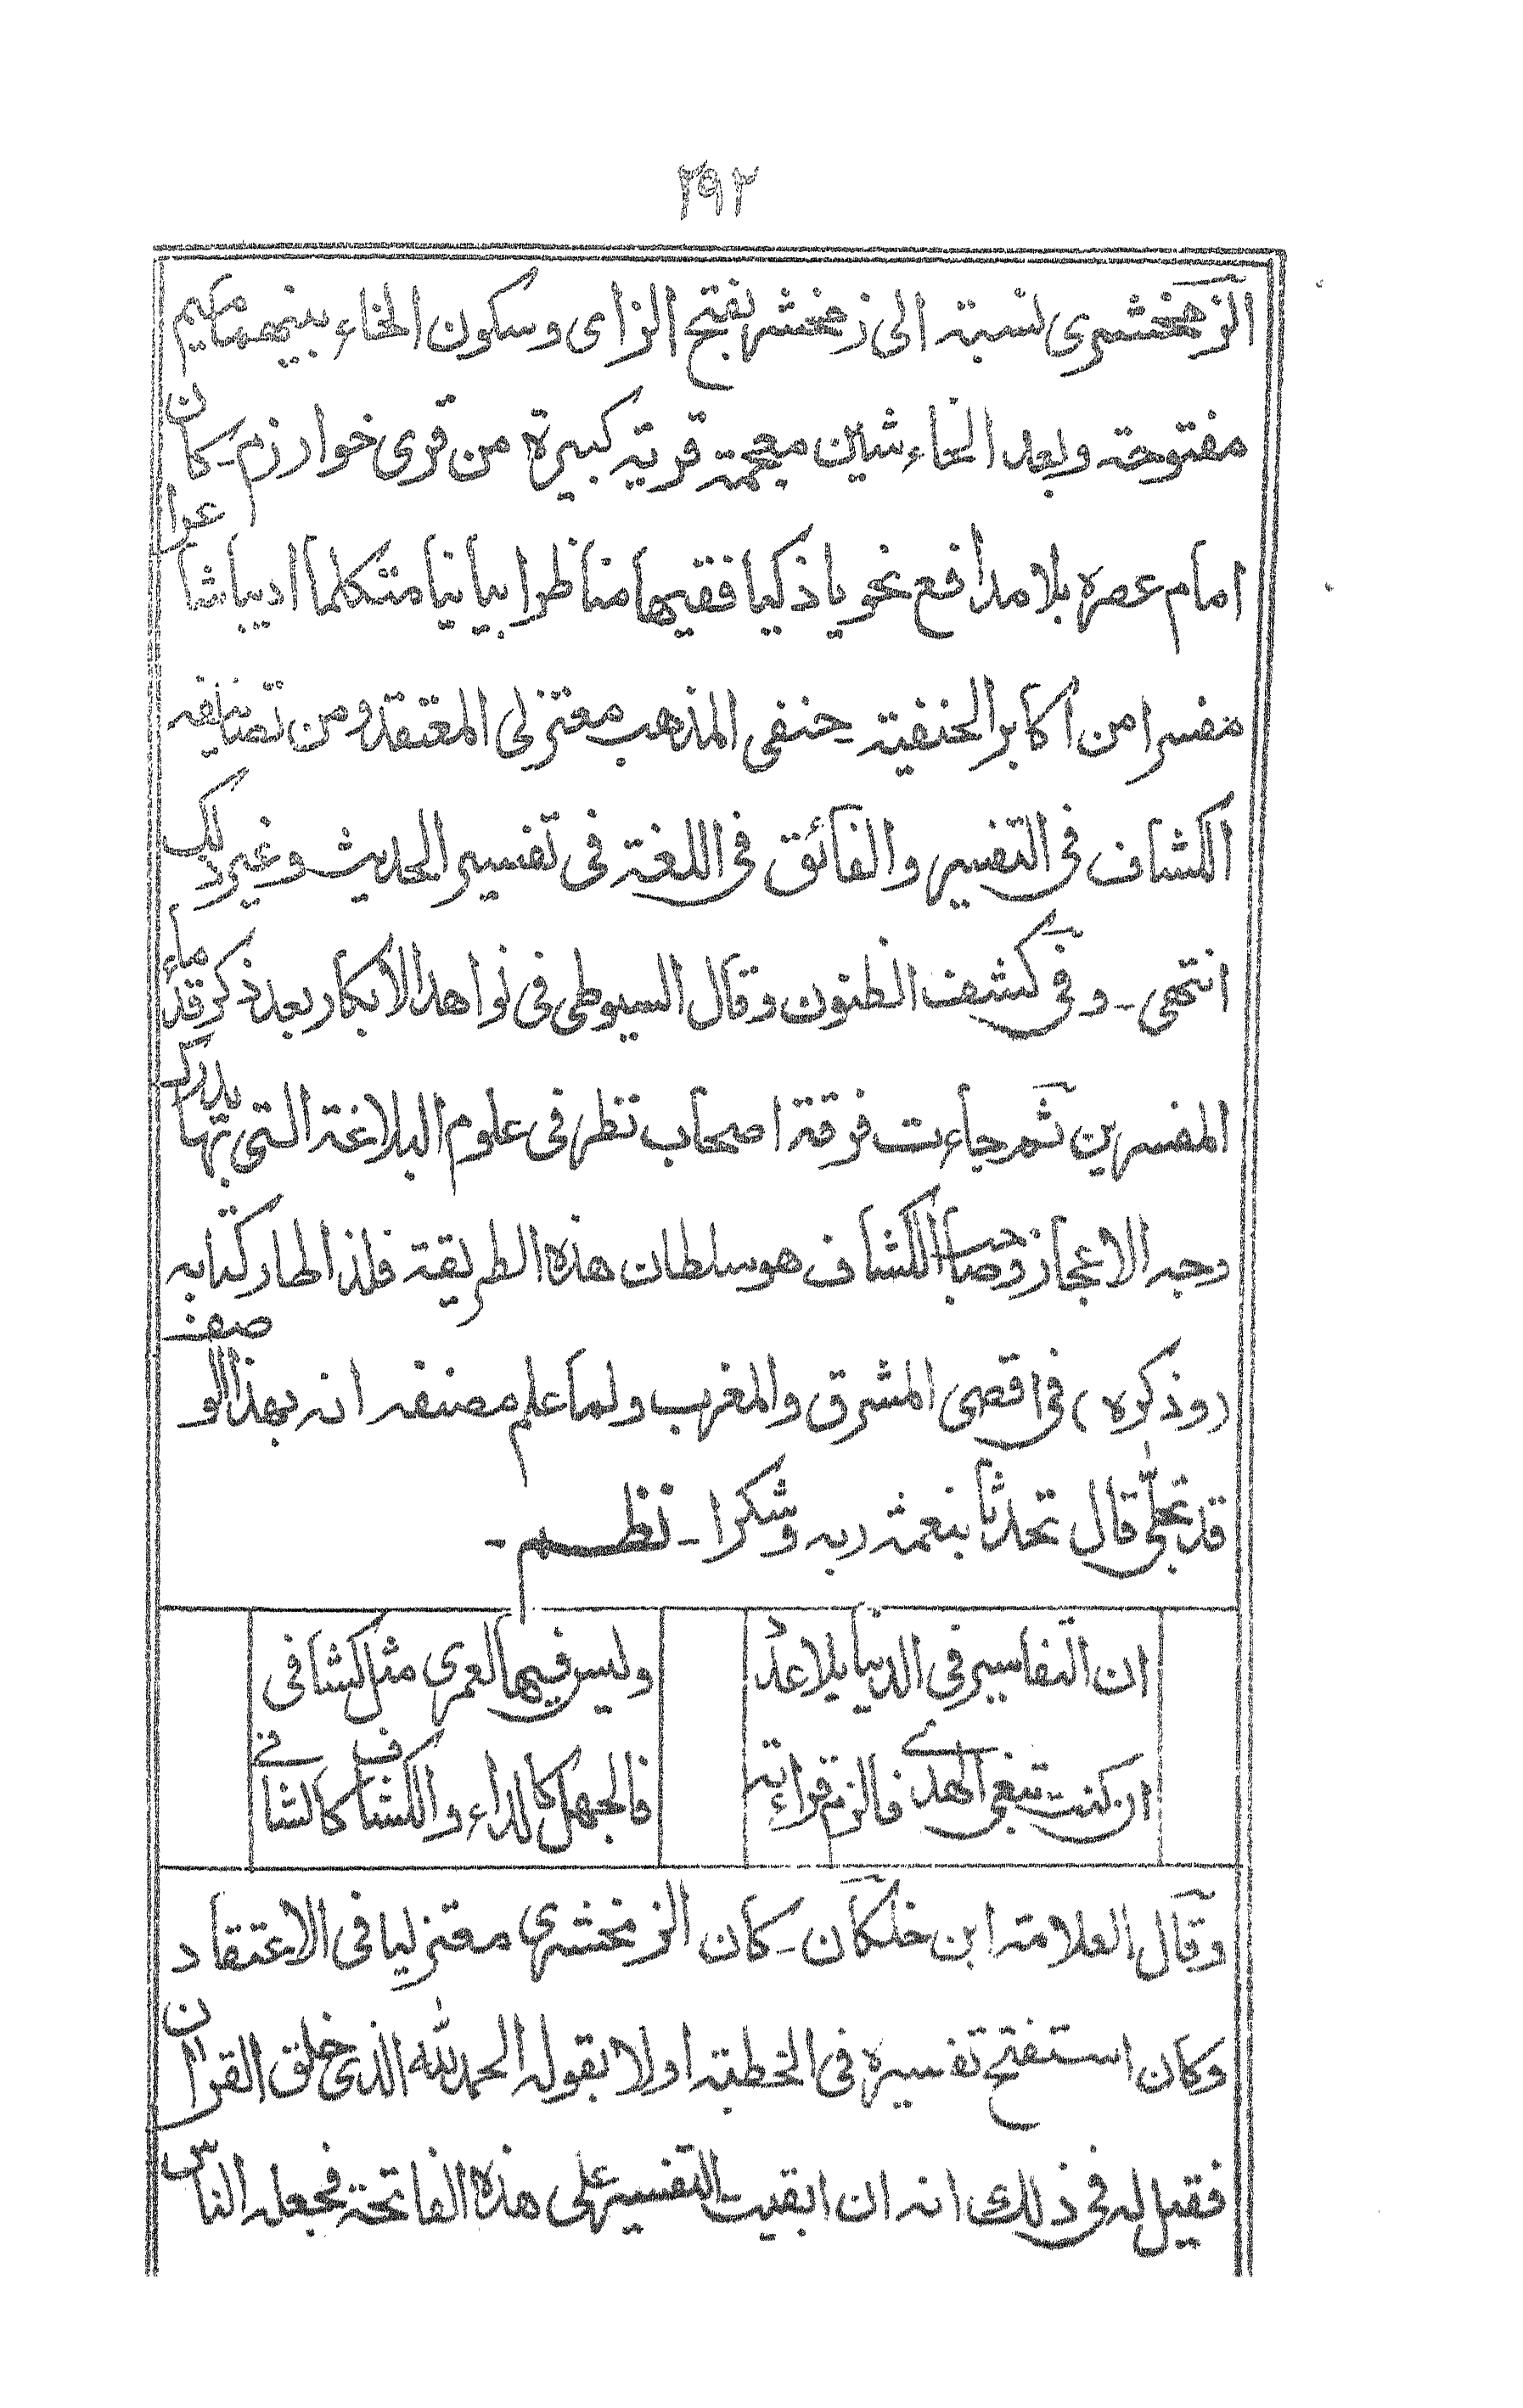 ۲۹۲
الزمخشری نسبته الی زمخشر بفتح الزای وسکون الخاء بینهما میم
مفتوحة وبعد الخاء شین معجمة قریة کبیرة من قری خوارزم ـ کان
امام عصره بلا مدافع نحویا ذکیا فقیها مناظرا بیانیا متکلما ادیبا شاعرا
مفسرا من اکابر الحنفیة ـ حنفی المذهب معتزلی المعتقد ومن تصانیفه
الکشاف فی التفسیر والفائق فی اللغة فی تفسیر الحدیث وغیر ذلک
انتهی ـ وفی کشف الظنون وقال السیوطی فی نواهد الابکار بعد ذکر قدماء
المفسرین ثم جاءت فرقة اصحاب نظر فی علوم البلاغة التی یدرک بها
وجه الاعجاز وصاحب الکشاف هو سلطان هذه الطریقة فلذا طار کتابه
(وذکره) فی اقصی المشرق والمغرب ولما علم مصنفه انه بهذا الوصف
قد تجلّٰی قال تحدثا بنعمة ربه وشکرا ـ نظم ـ
ان التفاسیر فی الدنیا بلا عدد ولیس فیها لعمری مثل کشافی
ان کنت تبغی الهدی فالزم قراءته فالجهل کالداء والکشاف کالشافی
وقال العلامة ابن خلکان ـ کان الزمخشری معتزلیا فی الاعتقاد
وکان استفتح تفسیره فی الخطبة اولا بقوله الحمد لله الذی خلق القران
فقیل له فی ذلک انه ان ابقیت التفسیر علی هذه الفاتحة فجعله الناس